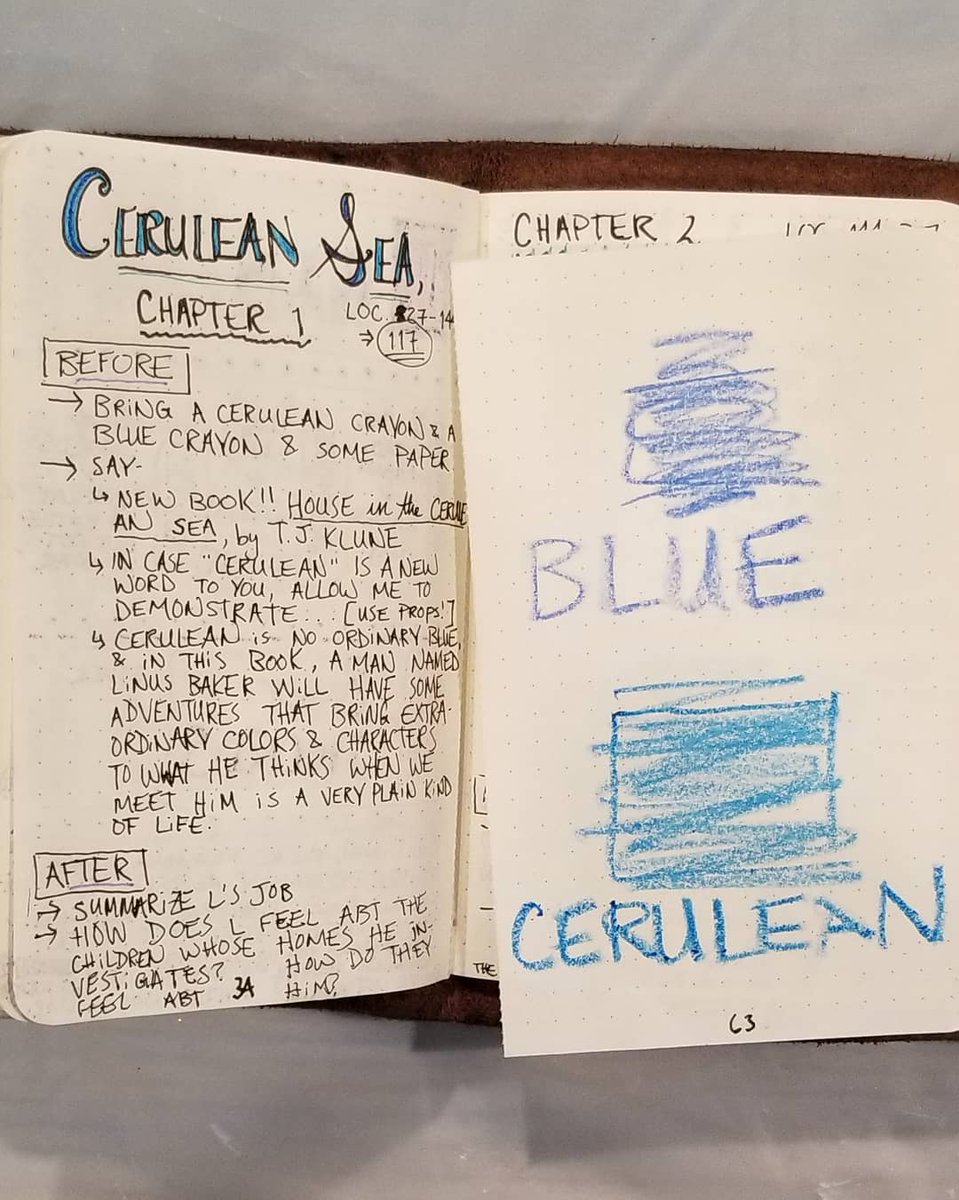 CERULEAN SEA,
CHAPTER 1
LOC. 27-14
→ 117
BEFORE
→ BRING A CERULEAN CRAYON & A
BLUE CRAYON & SOME PAPER
→ SAY-
↳ NEW BOOK!! HOUSE in the CERULE
AN SEA, by T.J. KLUNE
↳ IN CASE "CERULEAN" IS A NEW
WORD TO YOU, ALLOW ME TO
DEMONSTRATE... [USE PROPS!]
↳ CERULEAN is NO ORDINARY BLUE,
& IN THIS BOOK, A MAN NAMED
LINUS BAKER WILL HAVE SOME
ADVENTURES THAT BRING EXTRA-
ORDINARY COLORS & CHARACTERS
TO WHAT HE THINKS WHEN WE
MEET HIM IS A VERY PLAIN KIND
OF LIFE.
AFTER
→ SUMMARIZE L'S JOB
→ HOW DOES L FEEL ABT THE
CHILDREN WHOSE HOMES HE IN-
VESTIGATES? HOW DO THEY
FEEL ABT HIM?
34
CHAPTER 2
THE
BLUE
CERULEAN
63